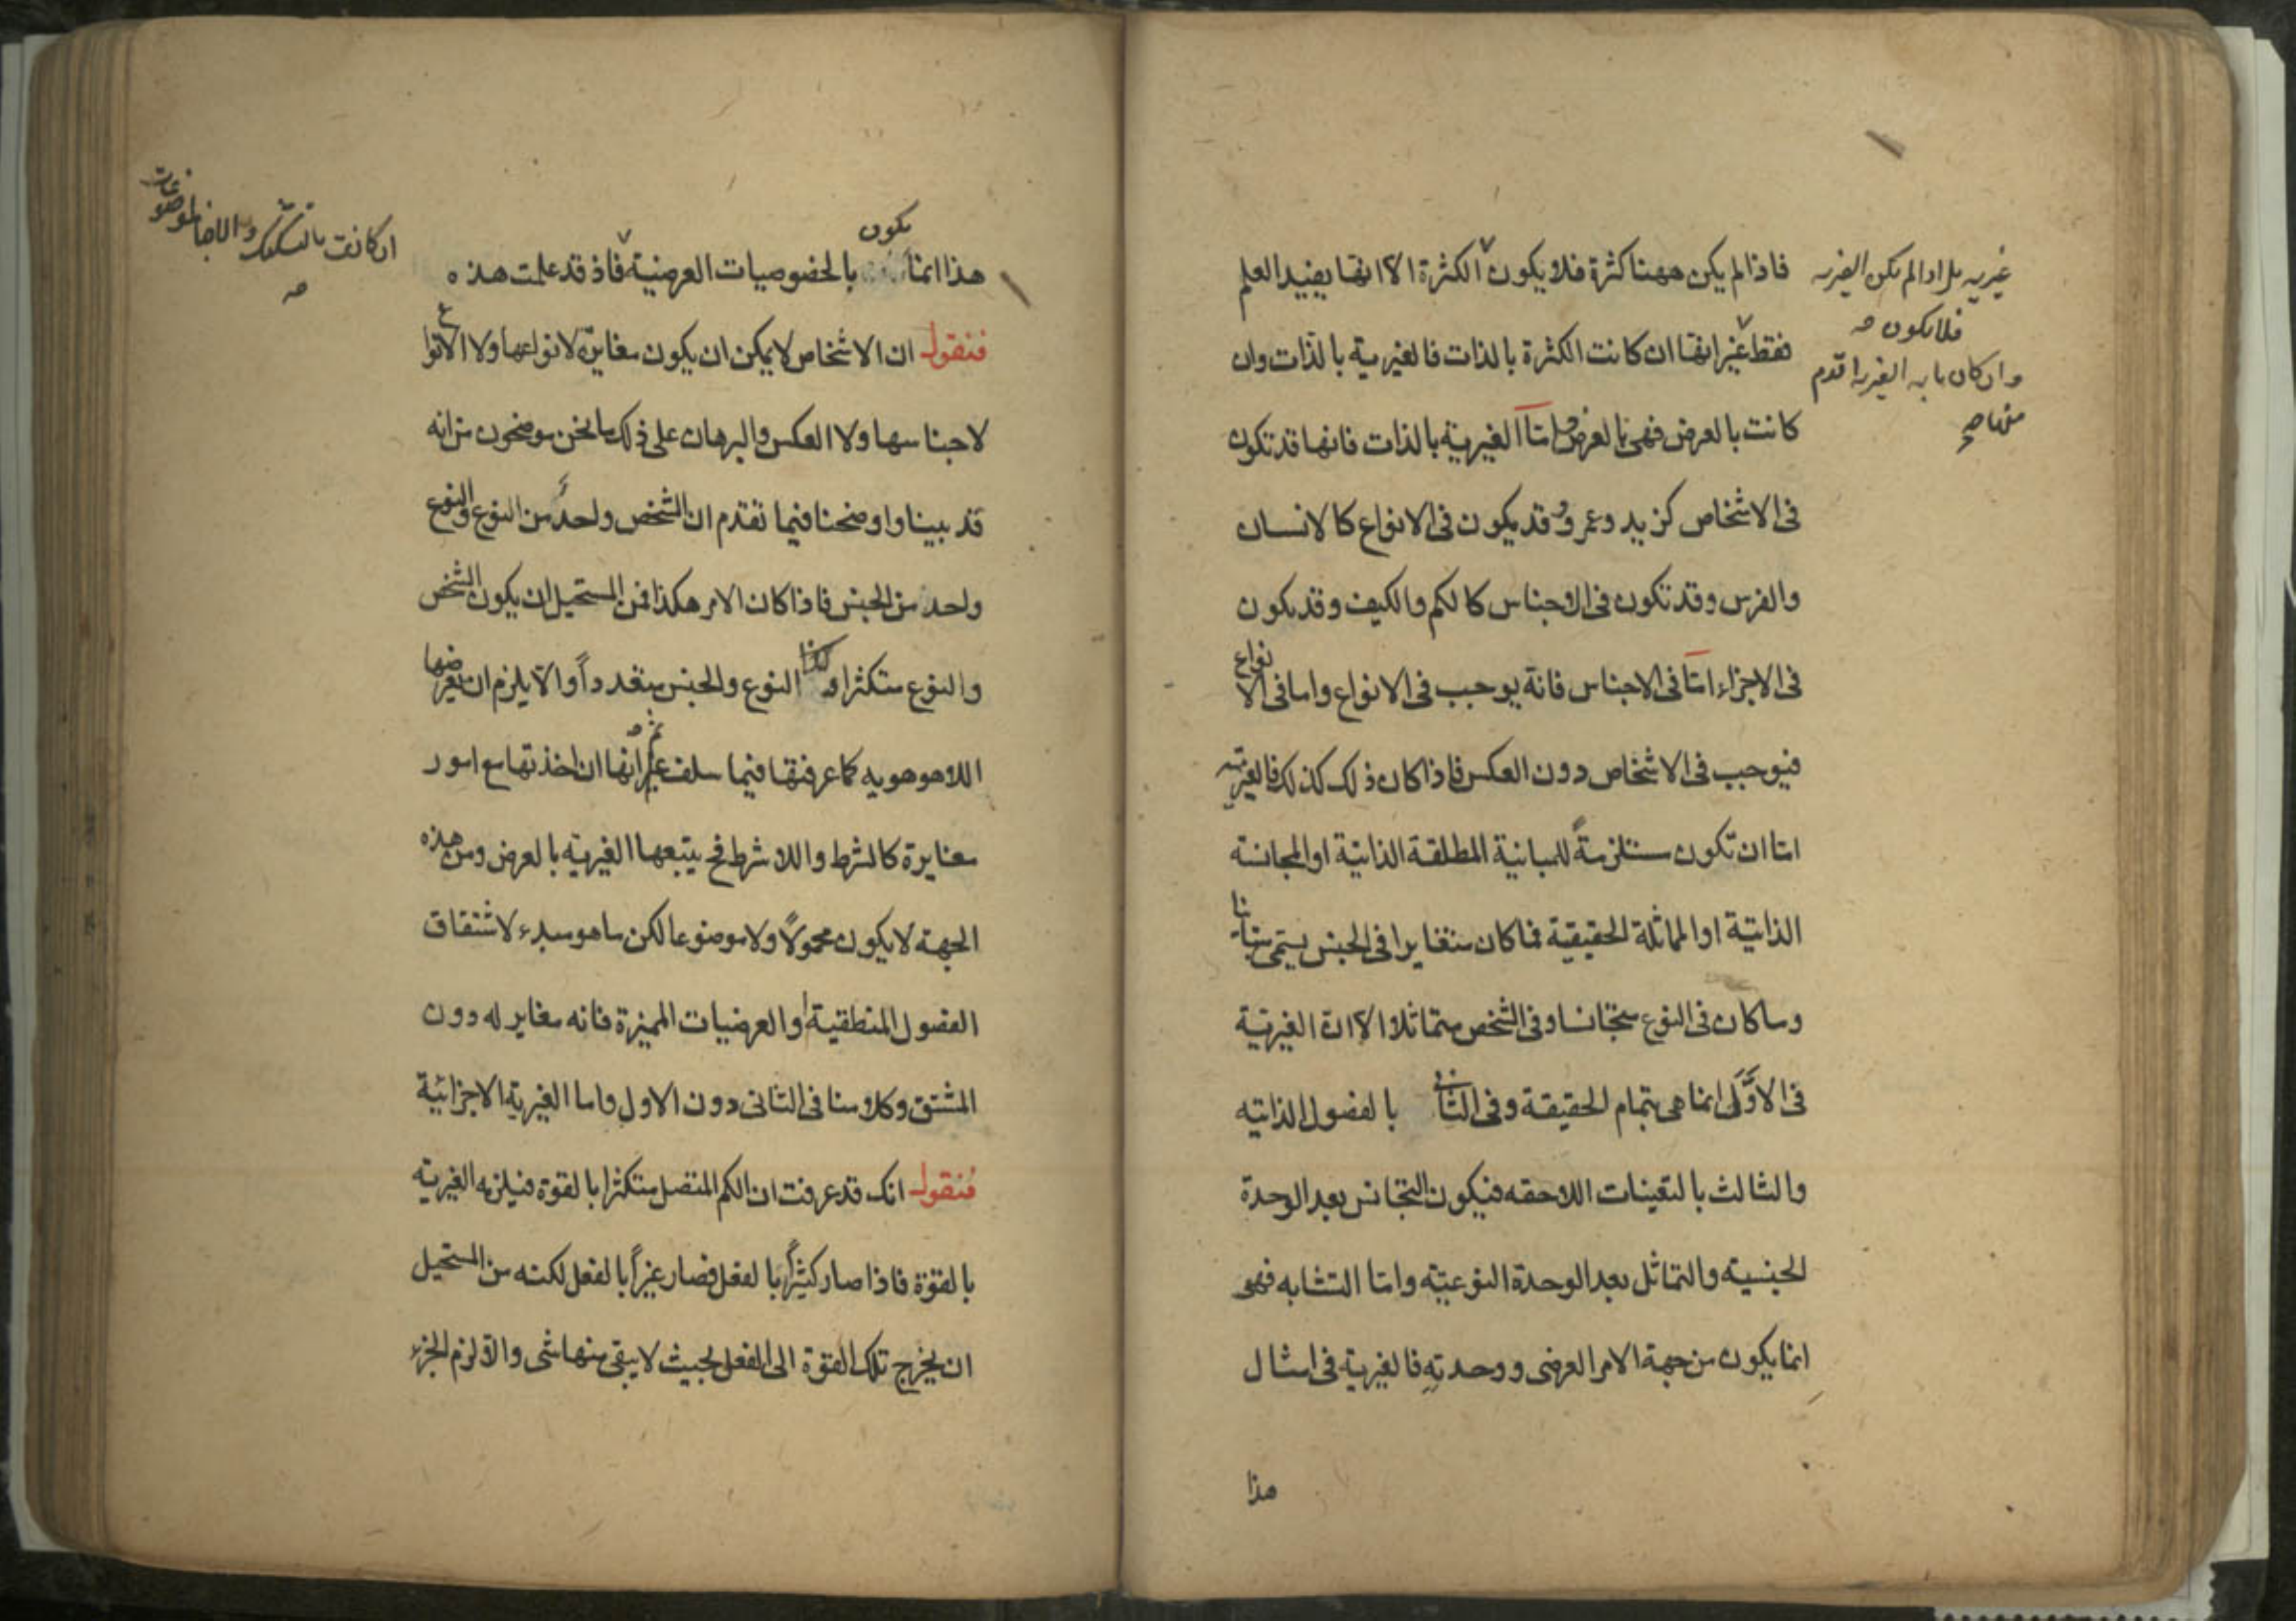 فاذا لم يكن ههنا كثرة فلا يكون الكثرة الا انها يفيد العلم
فقط غير انها ان كانت الكثرة بالذات فالغيرية بالذات وان
كانت بالعرض فهى بالعرض واما الغيرية بالذات فانها قد تكون
فى الاشخاص كزيد وعمرو وقد يكون فى الانواع كالانسان
والفرس وقد تكون فى الاجناس كالكم والكيف وقد يكون
فى الاجزاء امّا فى الاجناس فانه يوجب فى الانواع واما فى الانواع
فيوجب فى الاشخاص دون العكس فاذا كان ذلك كذلك فالغيرية
امّا ان تكون مستلزمةً للمباينة المطلقة الذاتية او المجانسة
الذاتية او المماثلة الحقيقية فما كان متغايرا فى الجنس يسمى متباينا
وما كان فى النوع متجانسا وفى الشخص متماثلا الا انّ الغيرية
فى الاوّل انما هى بتمام الحقيقة وفى الثانى بالفصول الذاتيه
والثالث بالتعينات اللاحقه فيكون التجانس بعد الوحدة
الجنسية والتماثل بعد الوحدة النوعيّة وامّا التشابه فهى
انما يكون من جهة الامر العرضى ووحدته فالغيرية فى امثال
هذا
غيريه بل اذا لم تكن الغيريه
فلا يكون صه
وان كان بابه الغيريه اقدم
منها صح
يكون
هذا انما بالخصوصيات العرضية فاذ قد علمت هذه
فنقول ان الاشخاص لا يمكن ان يكون مغايرة لانواعها ولا الانواع
لاجناسها ولا العكس والبرهان على ذلك ما نحن موضحون من انه
قد بينا واوضحنا فيما تقدم ان الشخص واحد من النوع والنوع
واحد من الجنس فاذا كان الامر هكذا فمن المستحيل ان يكون الشخص
والنوع متكثرا وكذا النوع والجنس متعدداً والّا يلزم ان يعرضها
اللاهوهويه كما عرفتها فيما سلف غير انها ان اخذتها مع امور
مغايرة كالشرط واللاشرط فح يتبعها الغيرية بالعرض ومن هذه
الجهة لا يكون محمولاً ولا موضوعا لكن ما هو مبدء لاشتقاق
الفصول المنطقية او العرضيات المميزة فانه مغاير له دون
المشتق وكلامنا فى الثانى دون الاول واما الغيرية الاجزائية
فنقول انك قد عرفت ان الكم المتصل متكثرا بالقوة فيلزمه الغيرية
بالقوة فاذا صار كثيراً بالفعل فصار غيراً بالفعل لكنه من المستحيل
ان يخرج تلك القوة الى الفعل بحيث لا يبقى منها شى والّا لزم الجزء
ان كانت بالتشكيك والاضا الموضوعات
صه